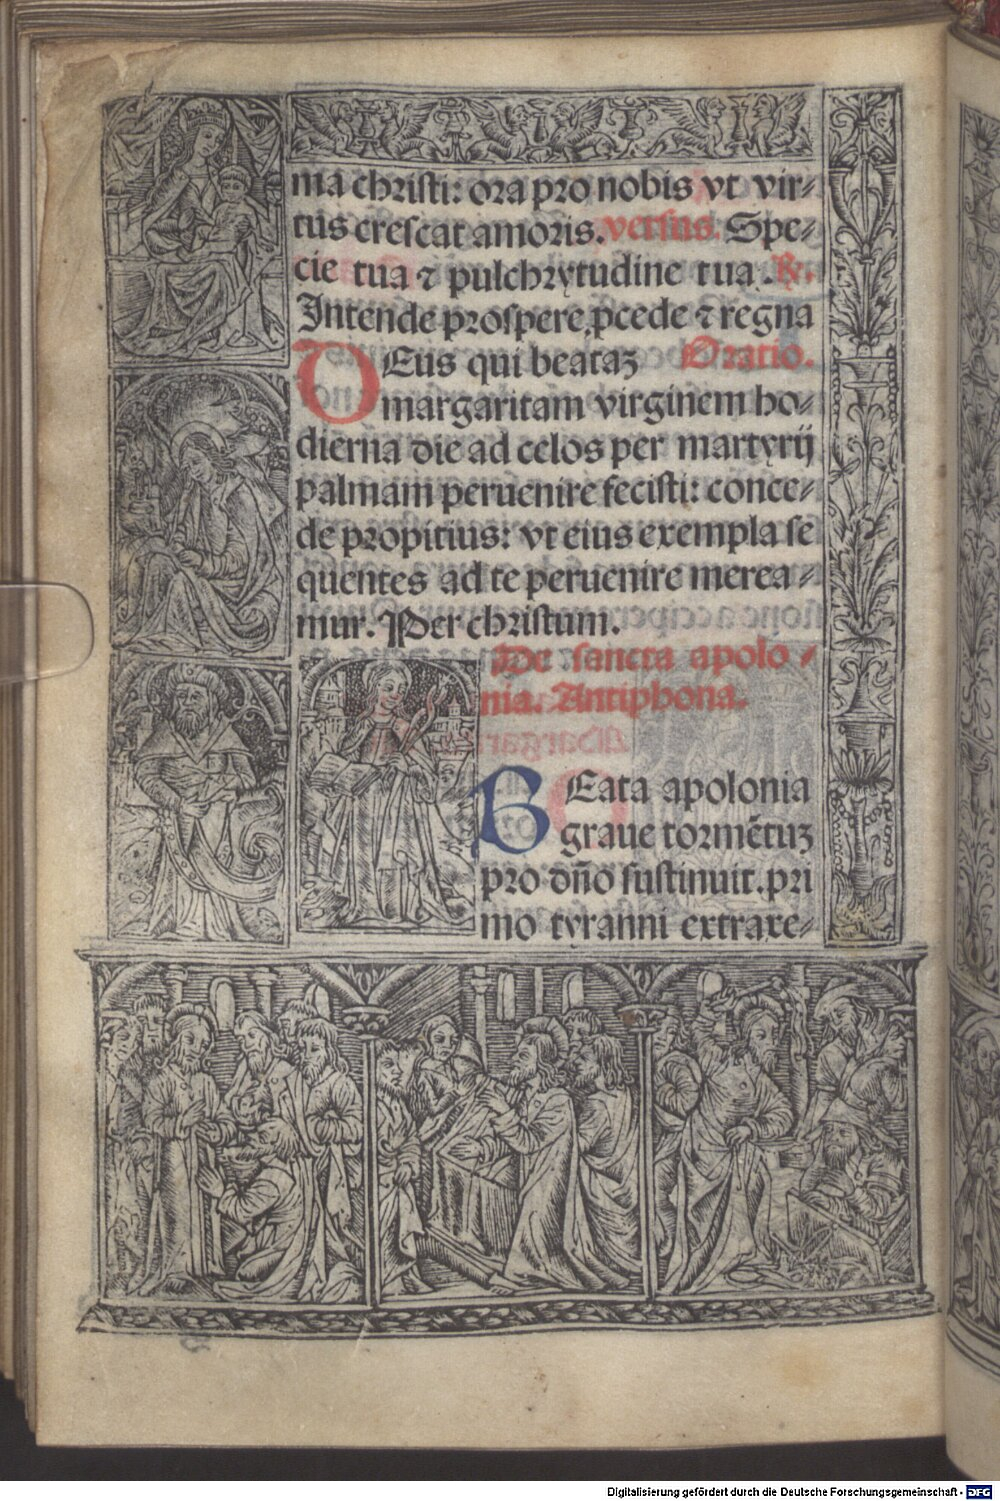 ma christi: ora pro nobis vt vir⸗
tus crescat amoris. versus. Spe⸗
cie tua ⁊ pulchrytudine tua. ℟.
Intende prospere, ꝓcede ⁊ regna
DEus qui beataꝫ Oratio.
margaritam virginem ho⸗
dierna die ad celos per martyrij
palmam peruenire fecisti: conce⸗
de propitius: vt eius exempla se
quentes ad te peruenire merea⸗
mur. Per christum.
De sancta apolo⸗
nia. Antiphona.
BEata apolonia
graue tormẽtuꝫ
pro dño sustinuit. pri
mo tyranni extraxe⸗
Digitalisierung gefördert durch die Deutsche Forschungsgemeinschaft - DFG